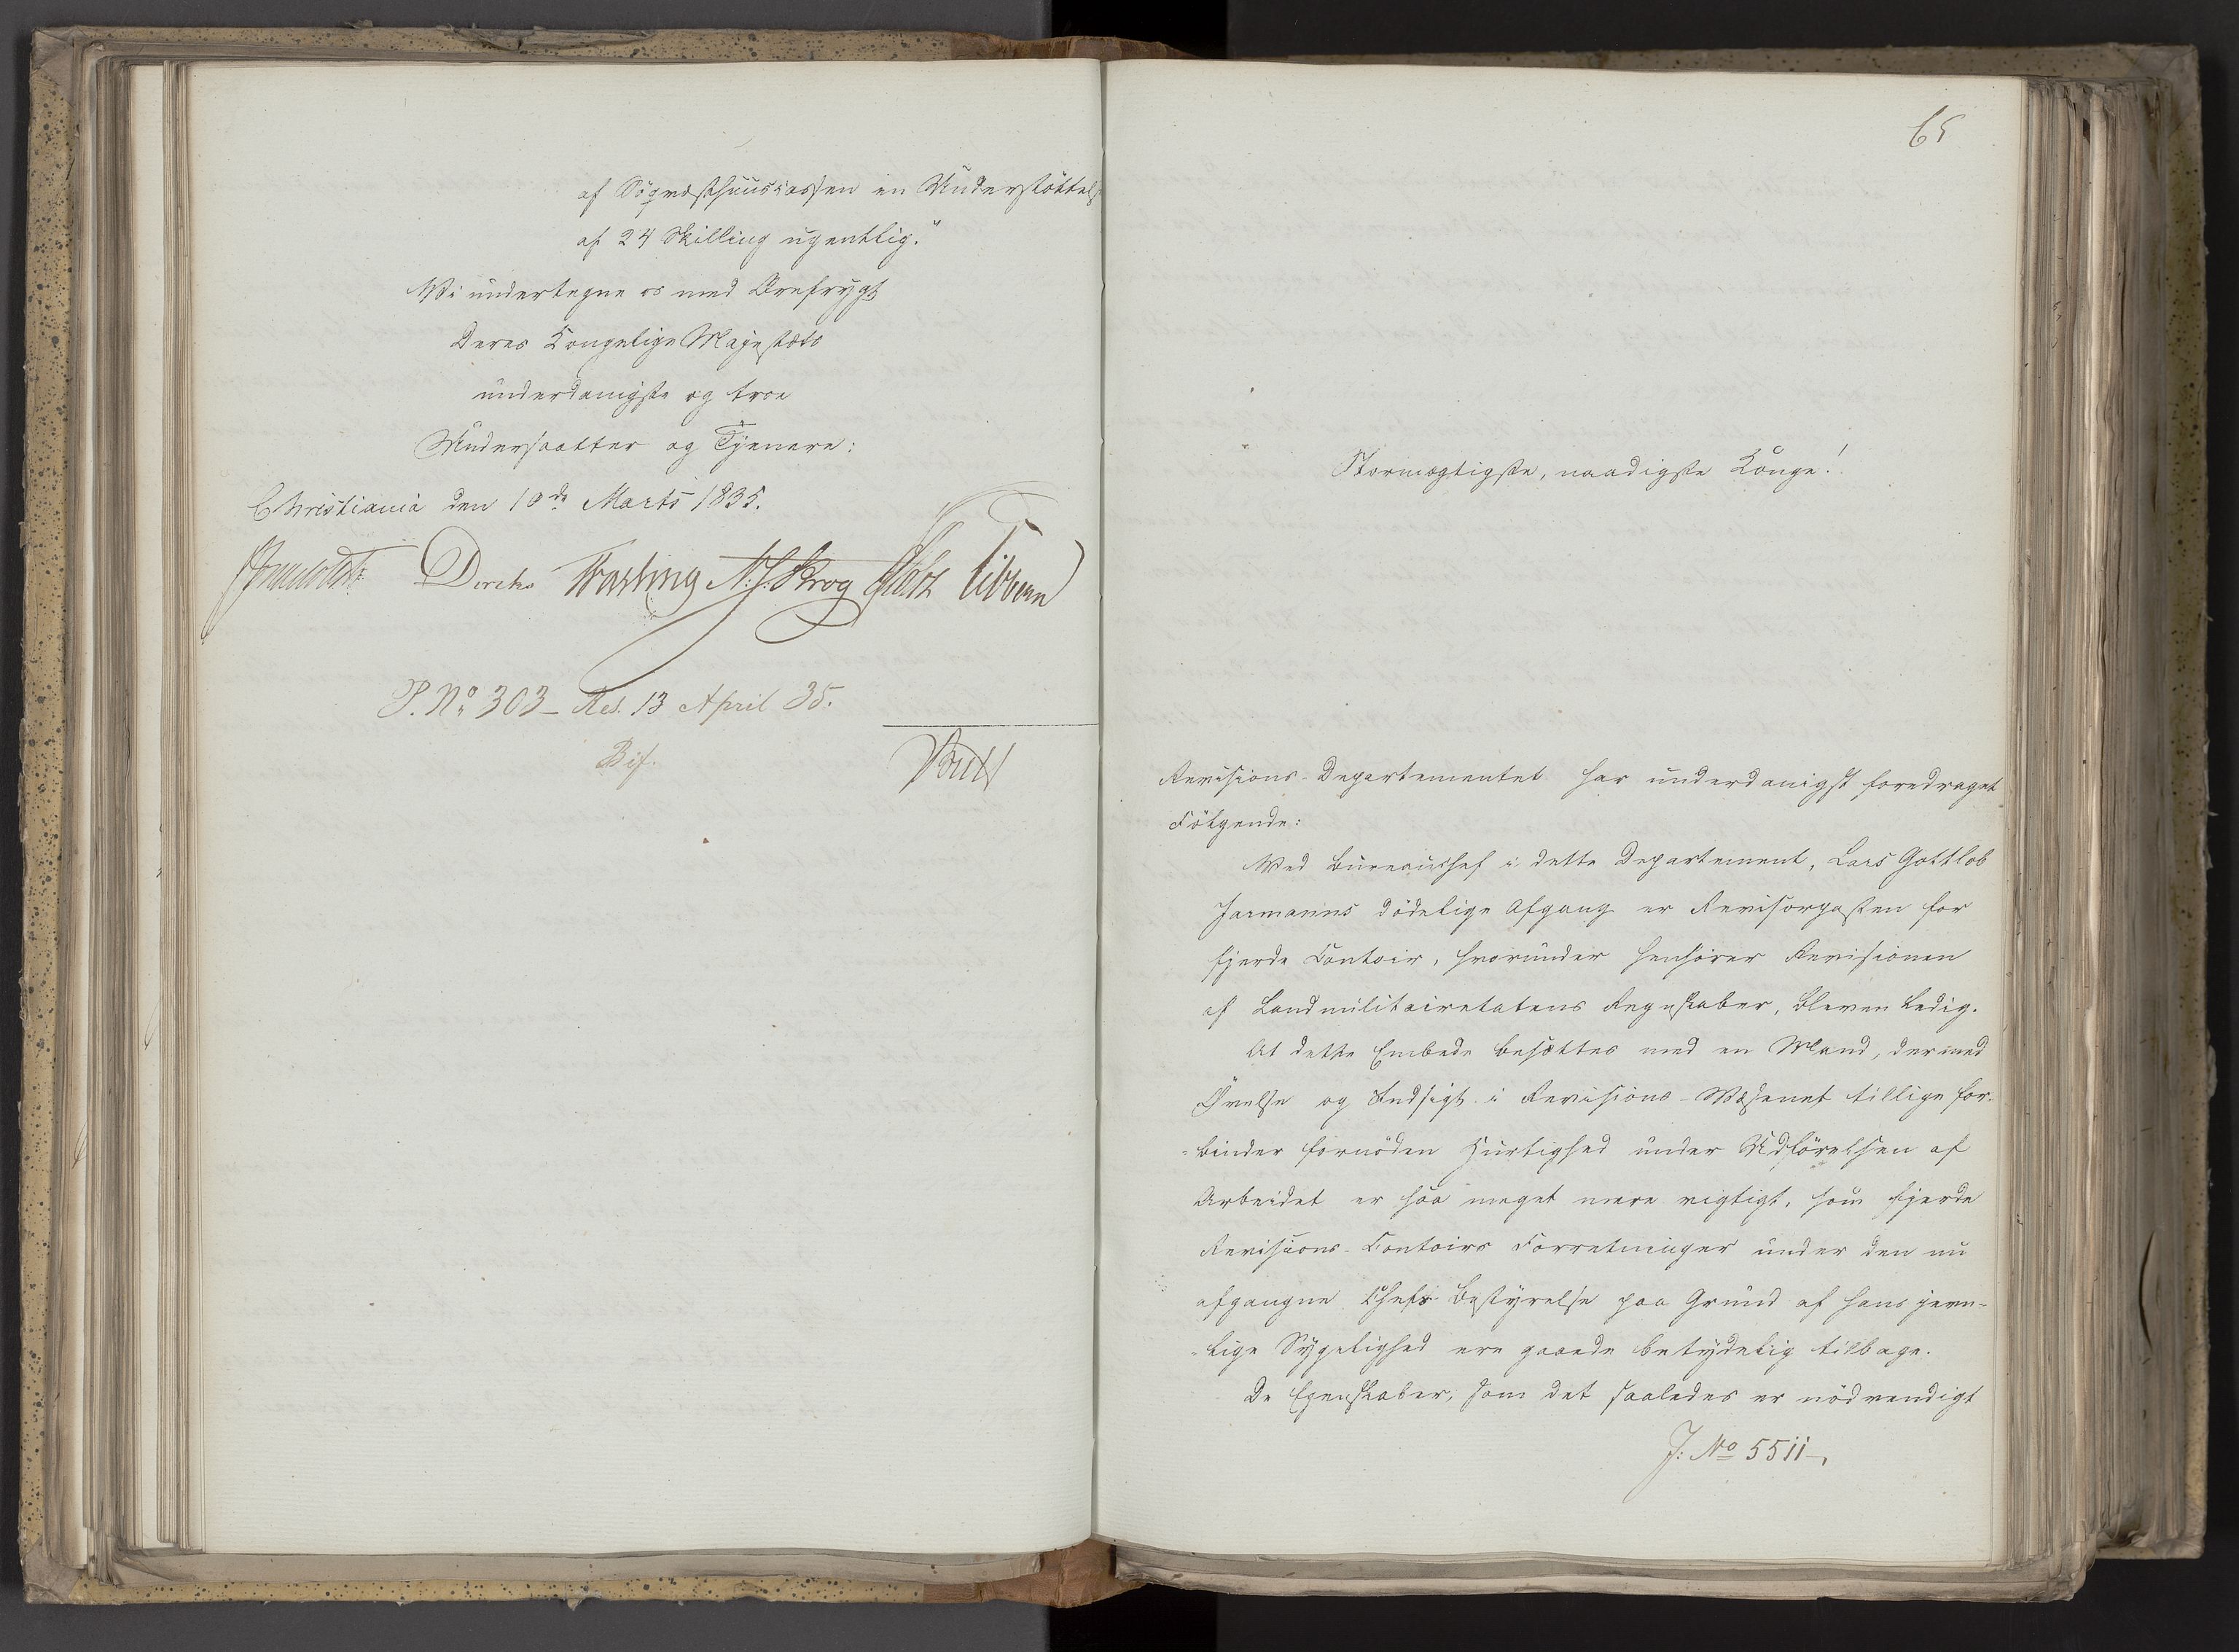 af Søqvæsthuuscassen en Understøttelse
af 24 Skilling ugentlig."
Vi undertegne os med Ærefrygt
Deres Kongelige Majestæts
underdanigste og troe
Undersaatter og Tjenere:
Christiania den 10de Marts 1835.
Diriks Fasting N. J. Krog Tibbern
P. No 303 - Res. 13 April 35.
Bif.
65
Stormægtigste, naadigste Konge!
Revisions-Departementet har underdanigst foredraget
Følgende:
Ved Bureauchef i dette Departement, Lars Gottlob
Jarmanns dødelige Afgang er Revisorposten for
fjerde Contoir, hvorunder henhører Revisionen
af Landmilitairetatens Regnskaber, bleven ledig.
At dette Embede besættes med en Mand, der med
Øvelse og Indsigt i Revisions-Væsenet tillige for-
-binder fornøden Hurtighed under Udførelsen af
Arbeidet er saa meget mere vigtigt, som fjerde
Revisions-Contoirs Forretninger under den nu
afgangne Chefs Bestyrelse paa Grund af hans jevn-
-lige Sygelighed ere gaaede betydelig tilbage.
De Egenskaber, som det saaledes er nødvendigt
J: No 5511,